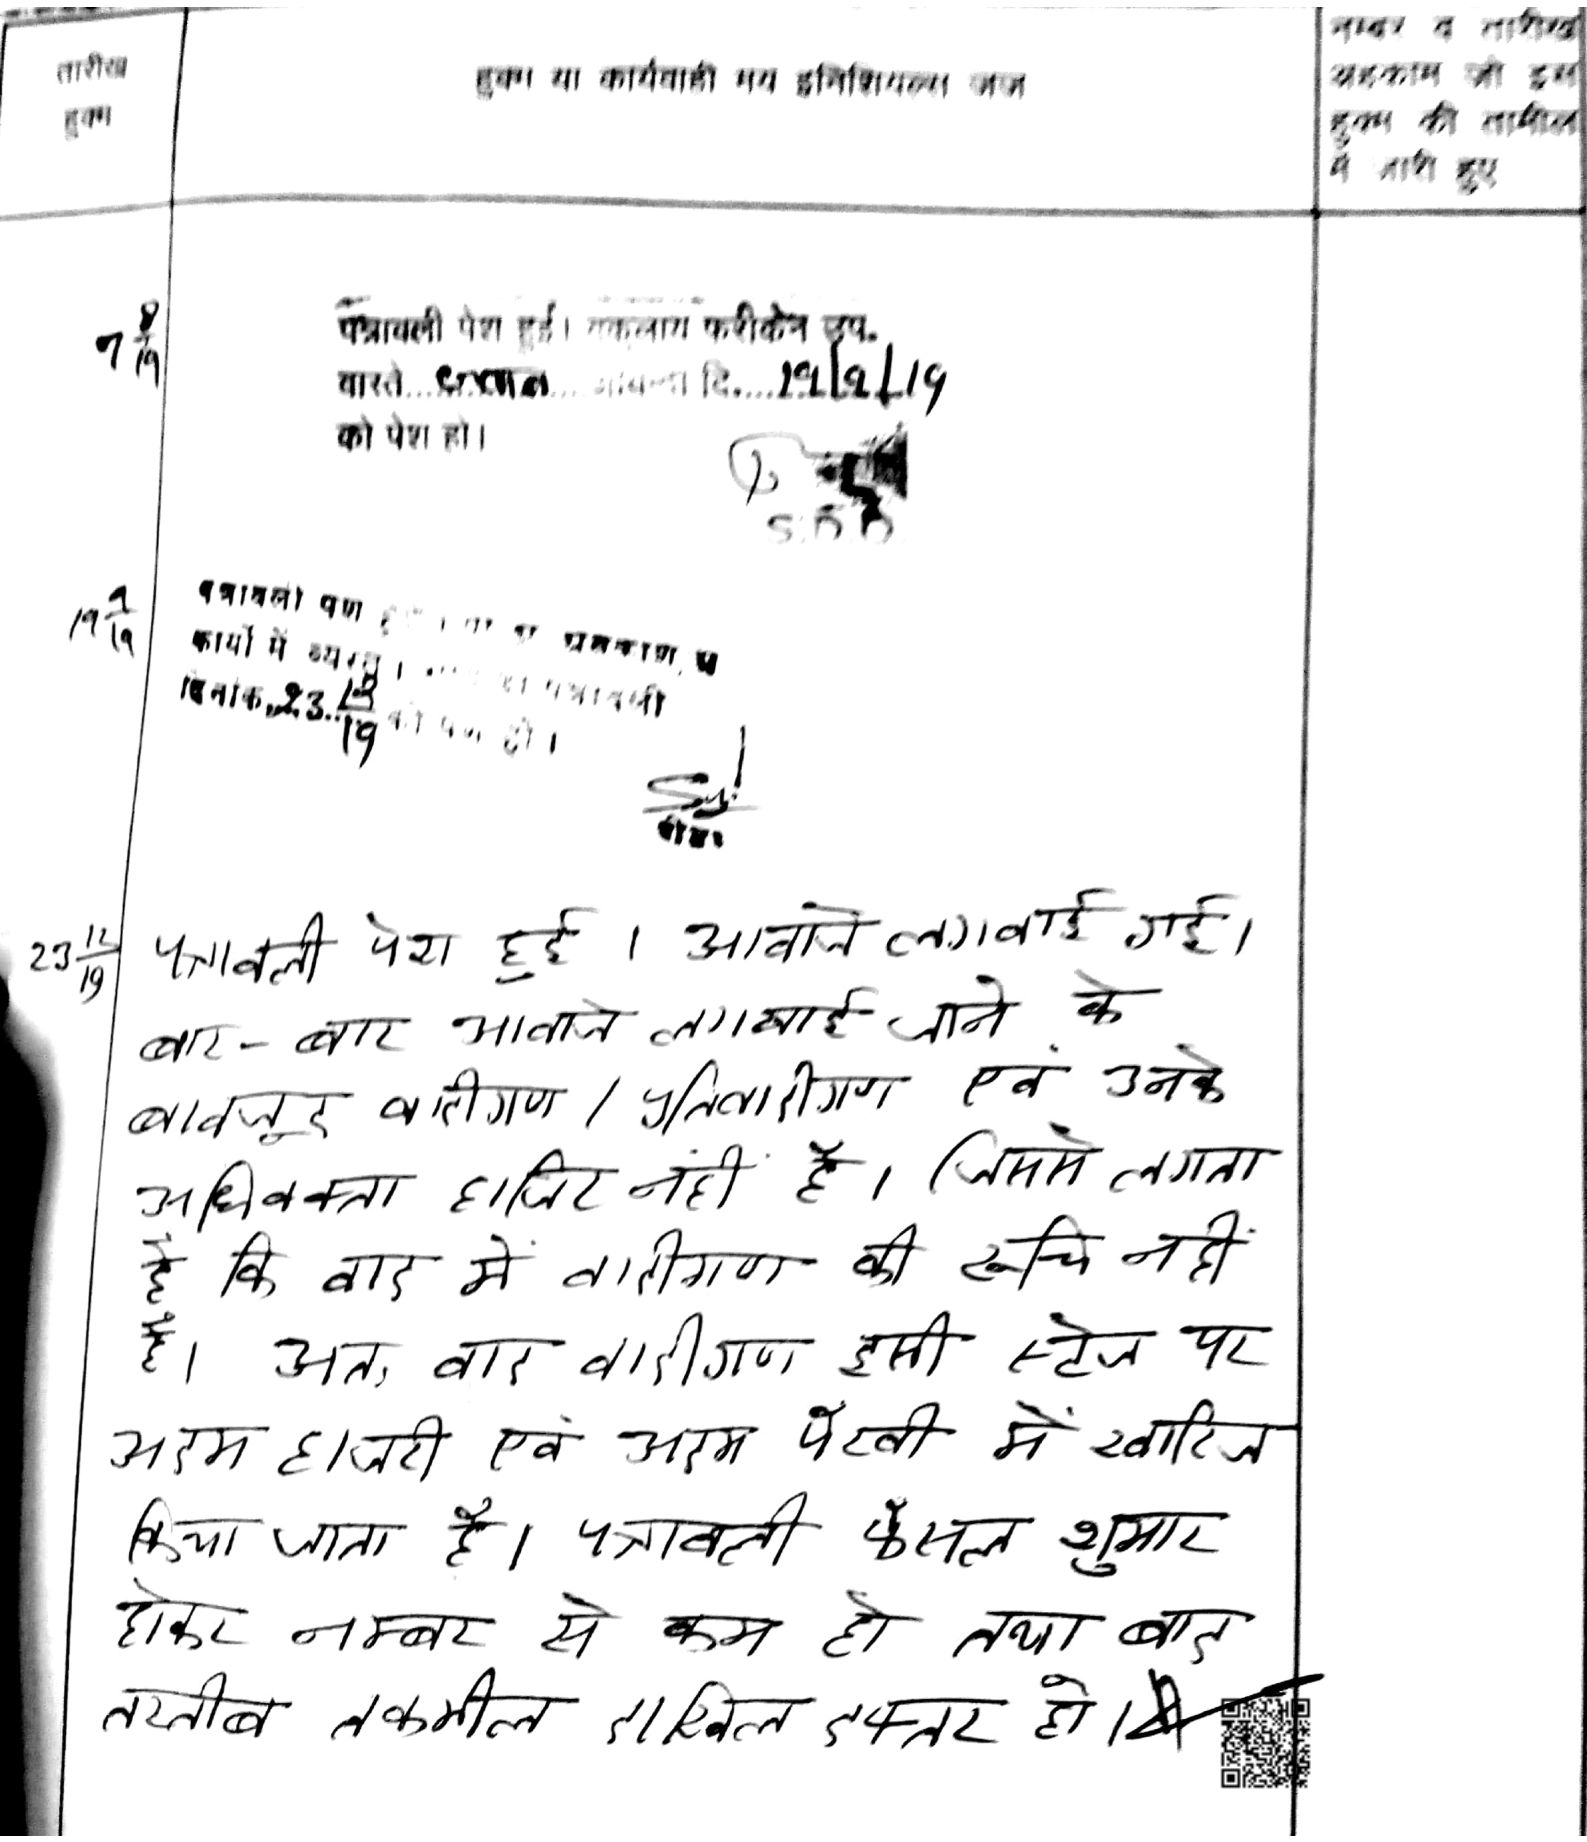 तारीख
हुक्म
हुक्म या कार्यवाही मय इनिशियल्स जज
नम्बर व तारीख
अहकाम जो इस
हुक्म की तामील
में जारी हुए
7 8/19
पत्रावली पेश हुई। वकलाय फरीकेन उप.
वास्ते... दि....19/9/19
को पेश हो।
S.D.O.
19 9/19
पत्रावली पेश
कार्यो में व्यस्त। पत्रावली
दिनांक 23 12/19 को पेश हो।
23 12/19
पत्रावली पेश हुई । आवाजे लगवाई गई।
बार-बार आवाजे लगवाई जाने के
बावजूद वादीगण / प्रतिवादीगण एवं उनके
अधिवक्ता हाजिर नंही है । जिससे लगता
है कि वाद में वादीगण की रूचि नहीं
है। अतः वाद वादीगण इसी स्टेज पर
अदम हाजरी एवं अदम पैरवी में खारिज
किया जाता है । पत्रावली फैसल शुमार
होकर नम्बर से कम हो तथा बाद
तरतीब तकमील दाखिल दफ्तर हो ।